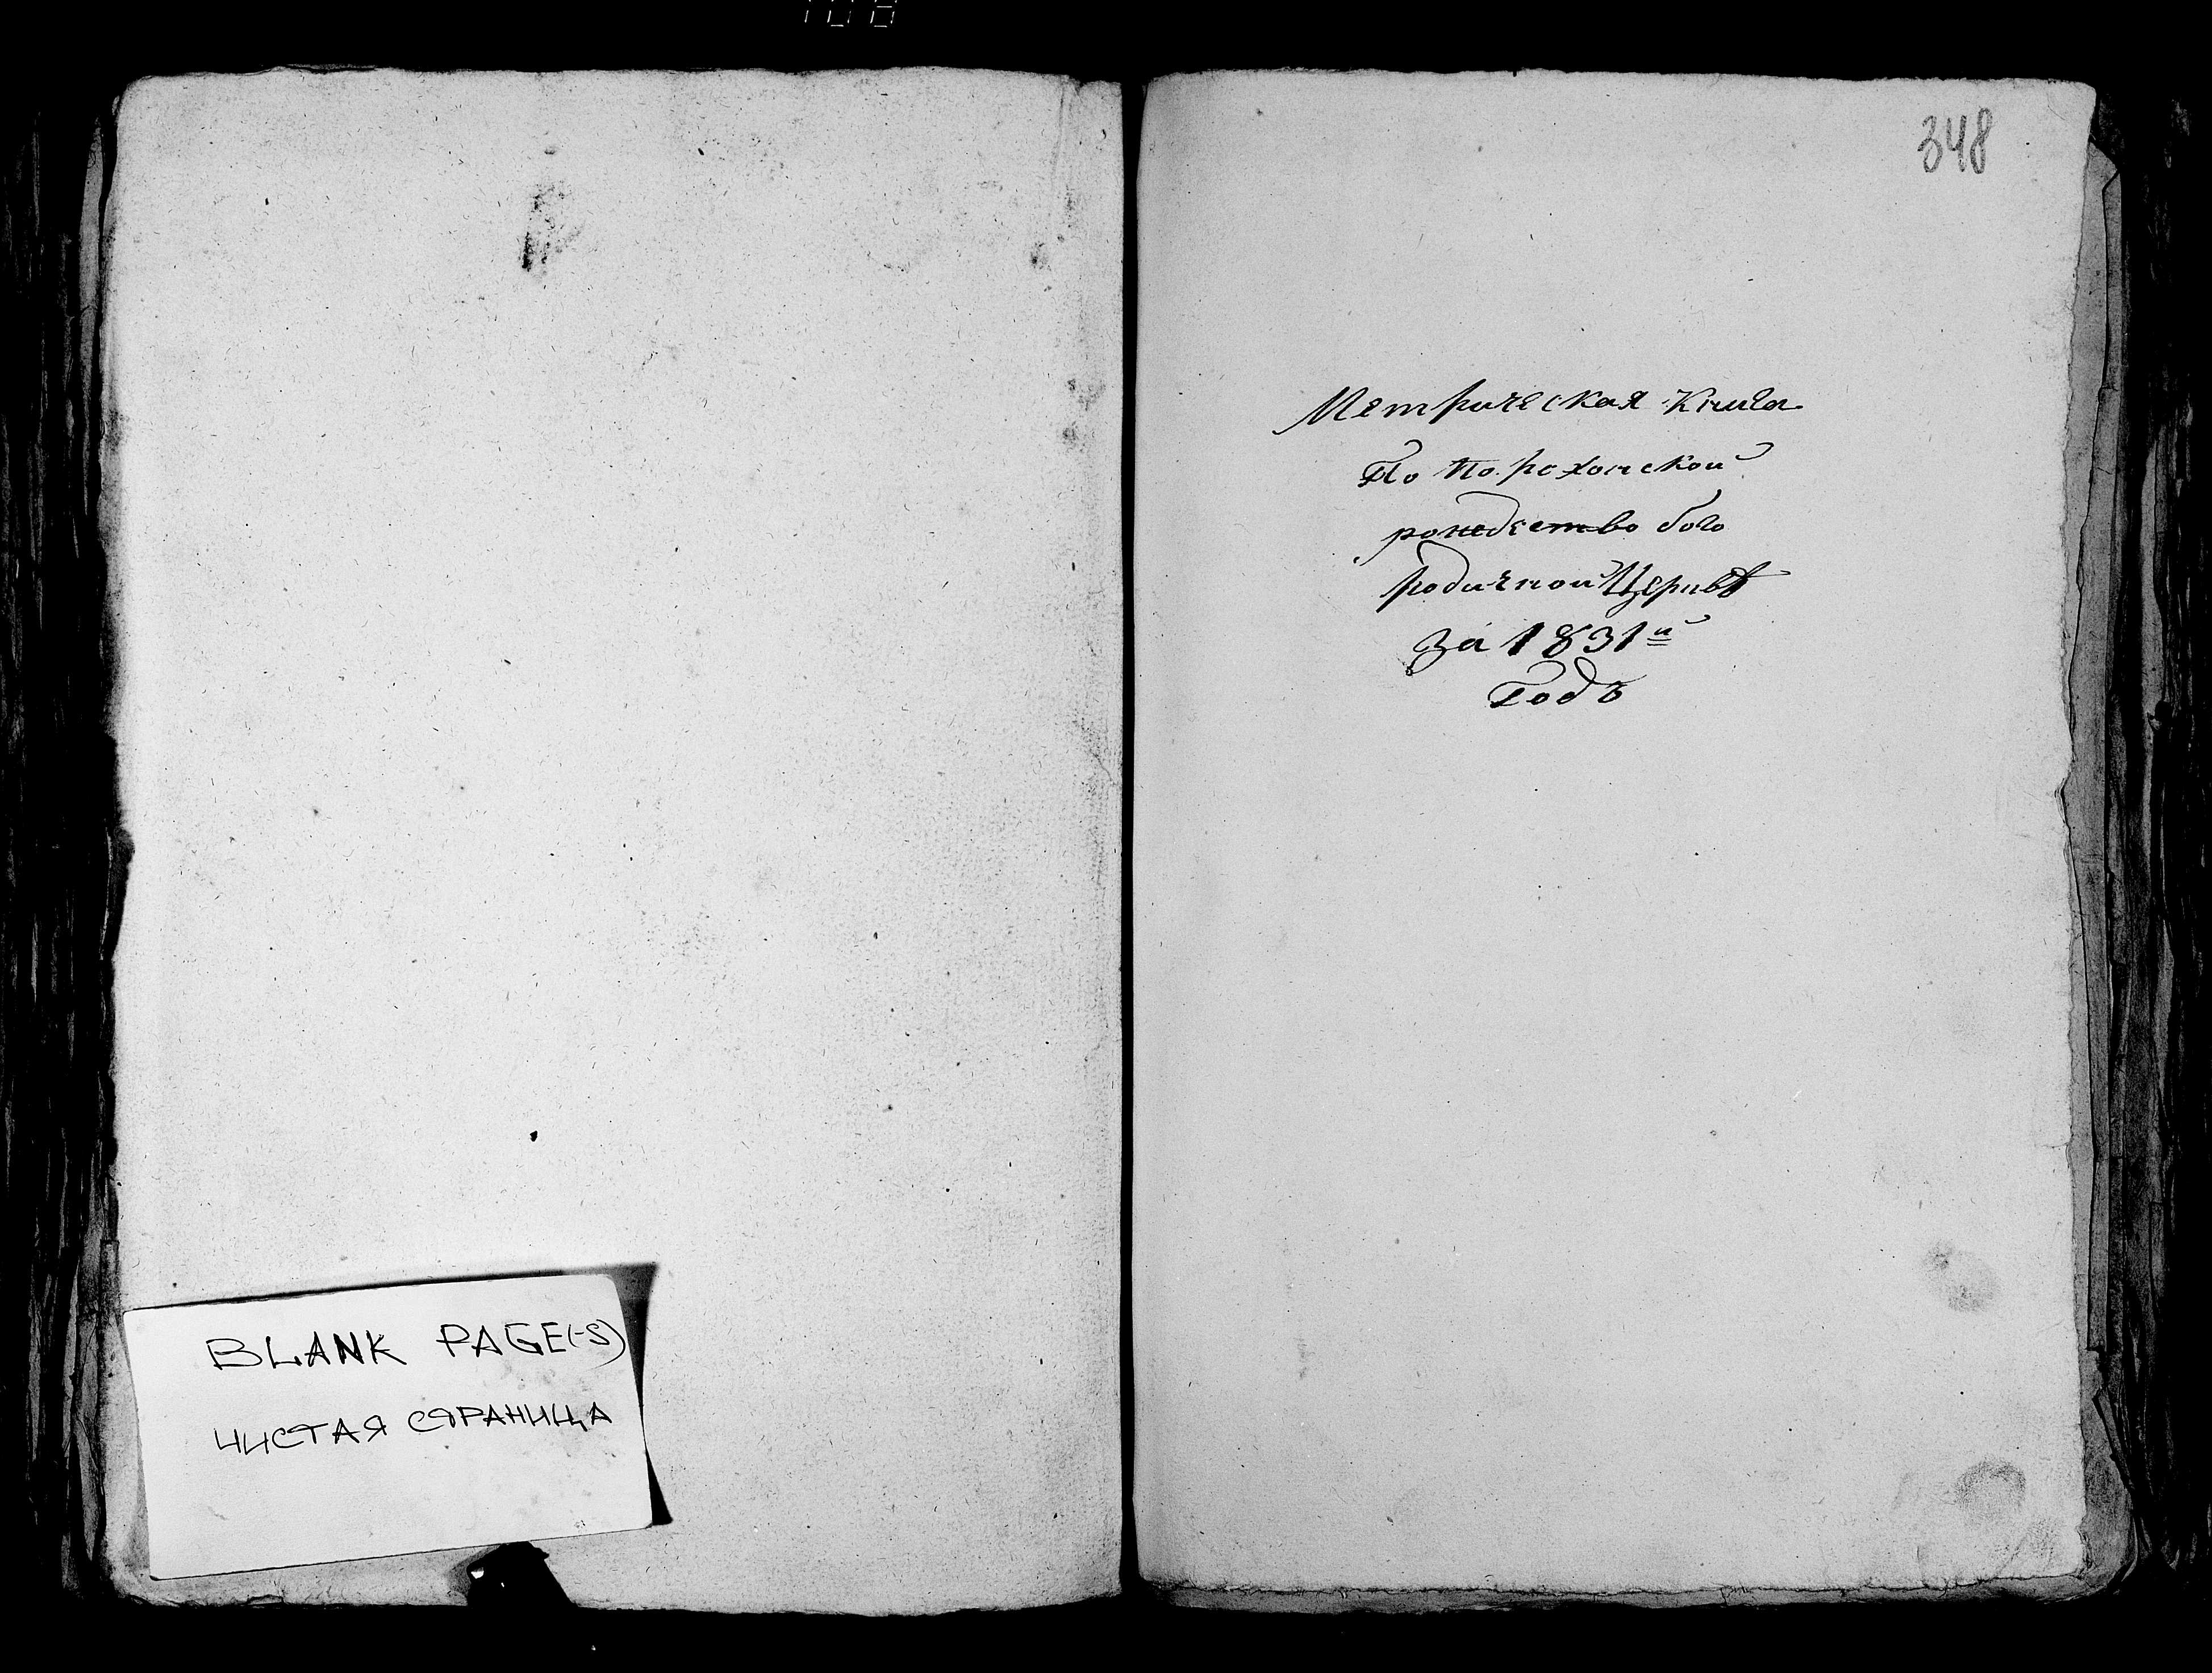 108
BLANK PAGE(-S)
ЧИСТАЯ СТРАНИЦА
348
Метрическая Книга
По Порохонской
рожедество бого
родичной Церквѣ
За 1831й
Годъ